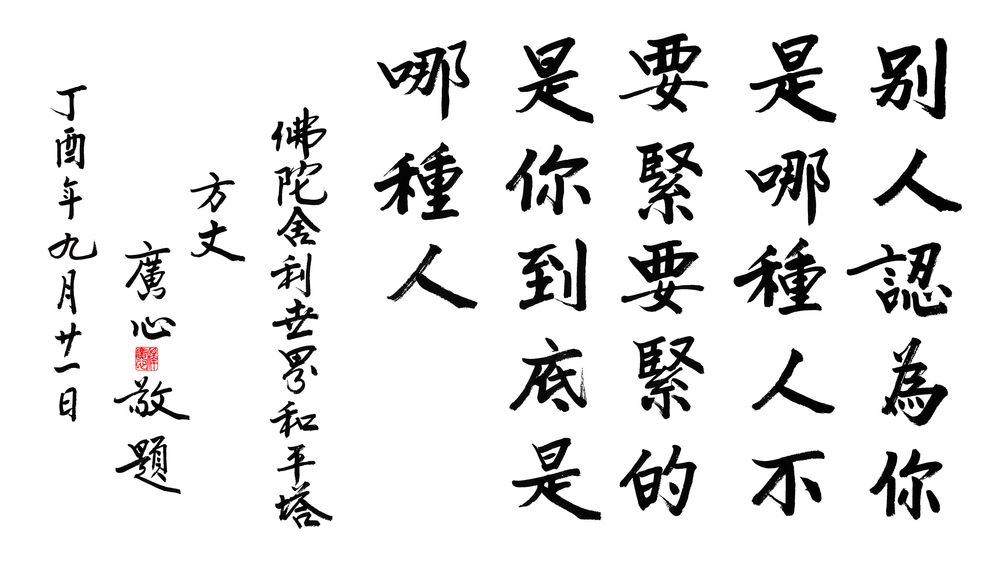 别人認為你
是哪種人不
要緊要緊的
是你到底是
哪種人
佛陀舍利世界和平塔
方丈
廣心敬題
丁酉年九月廿一日